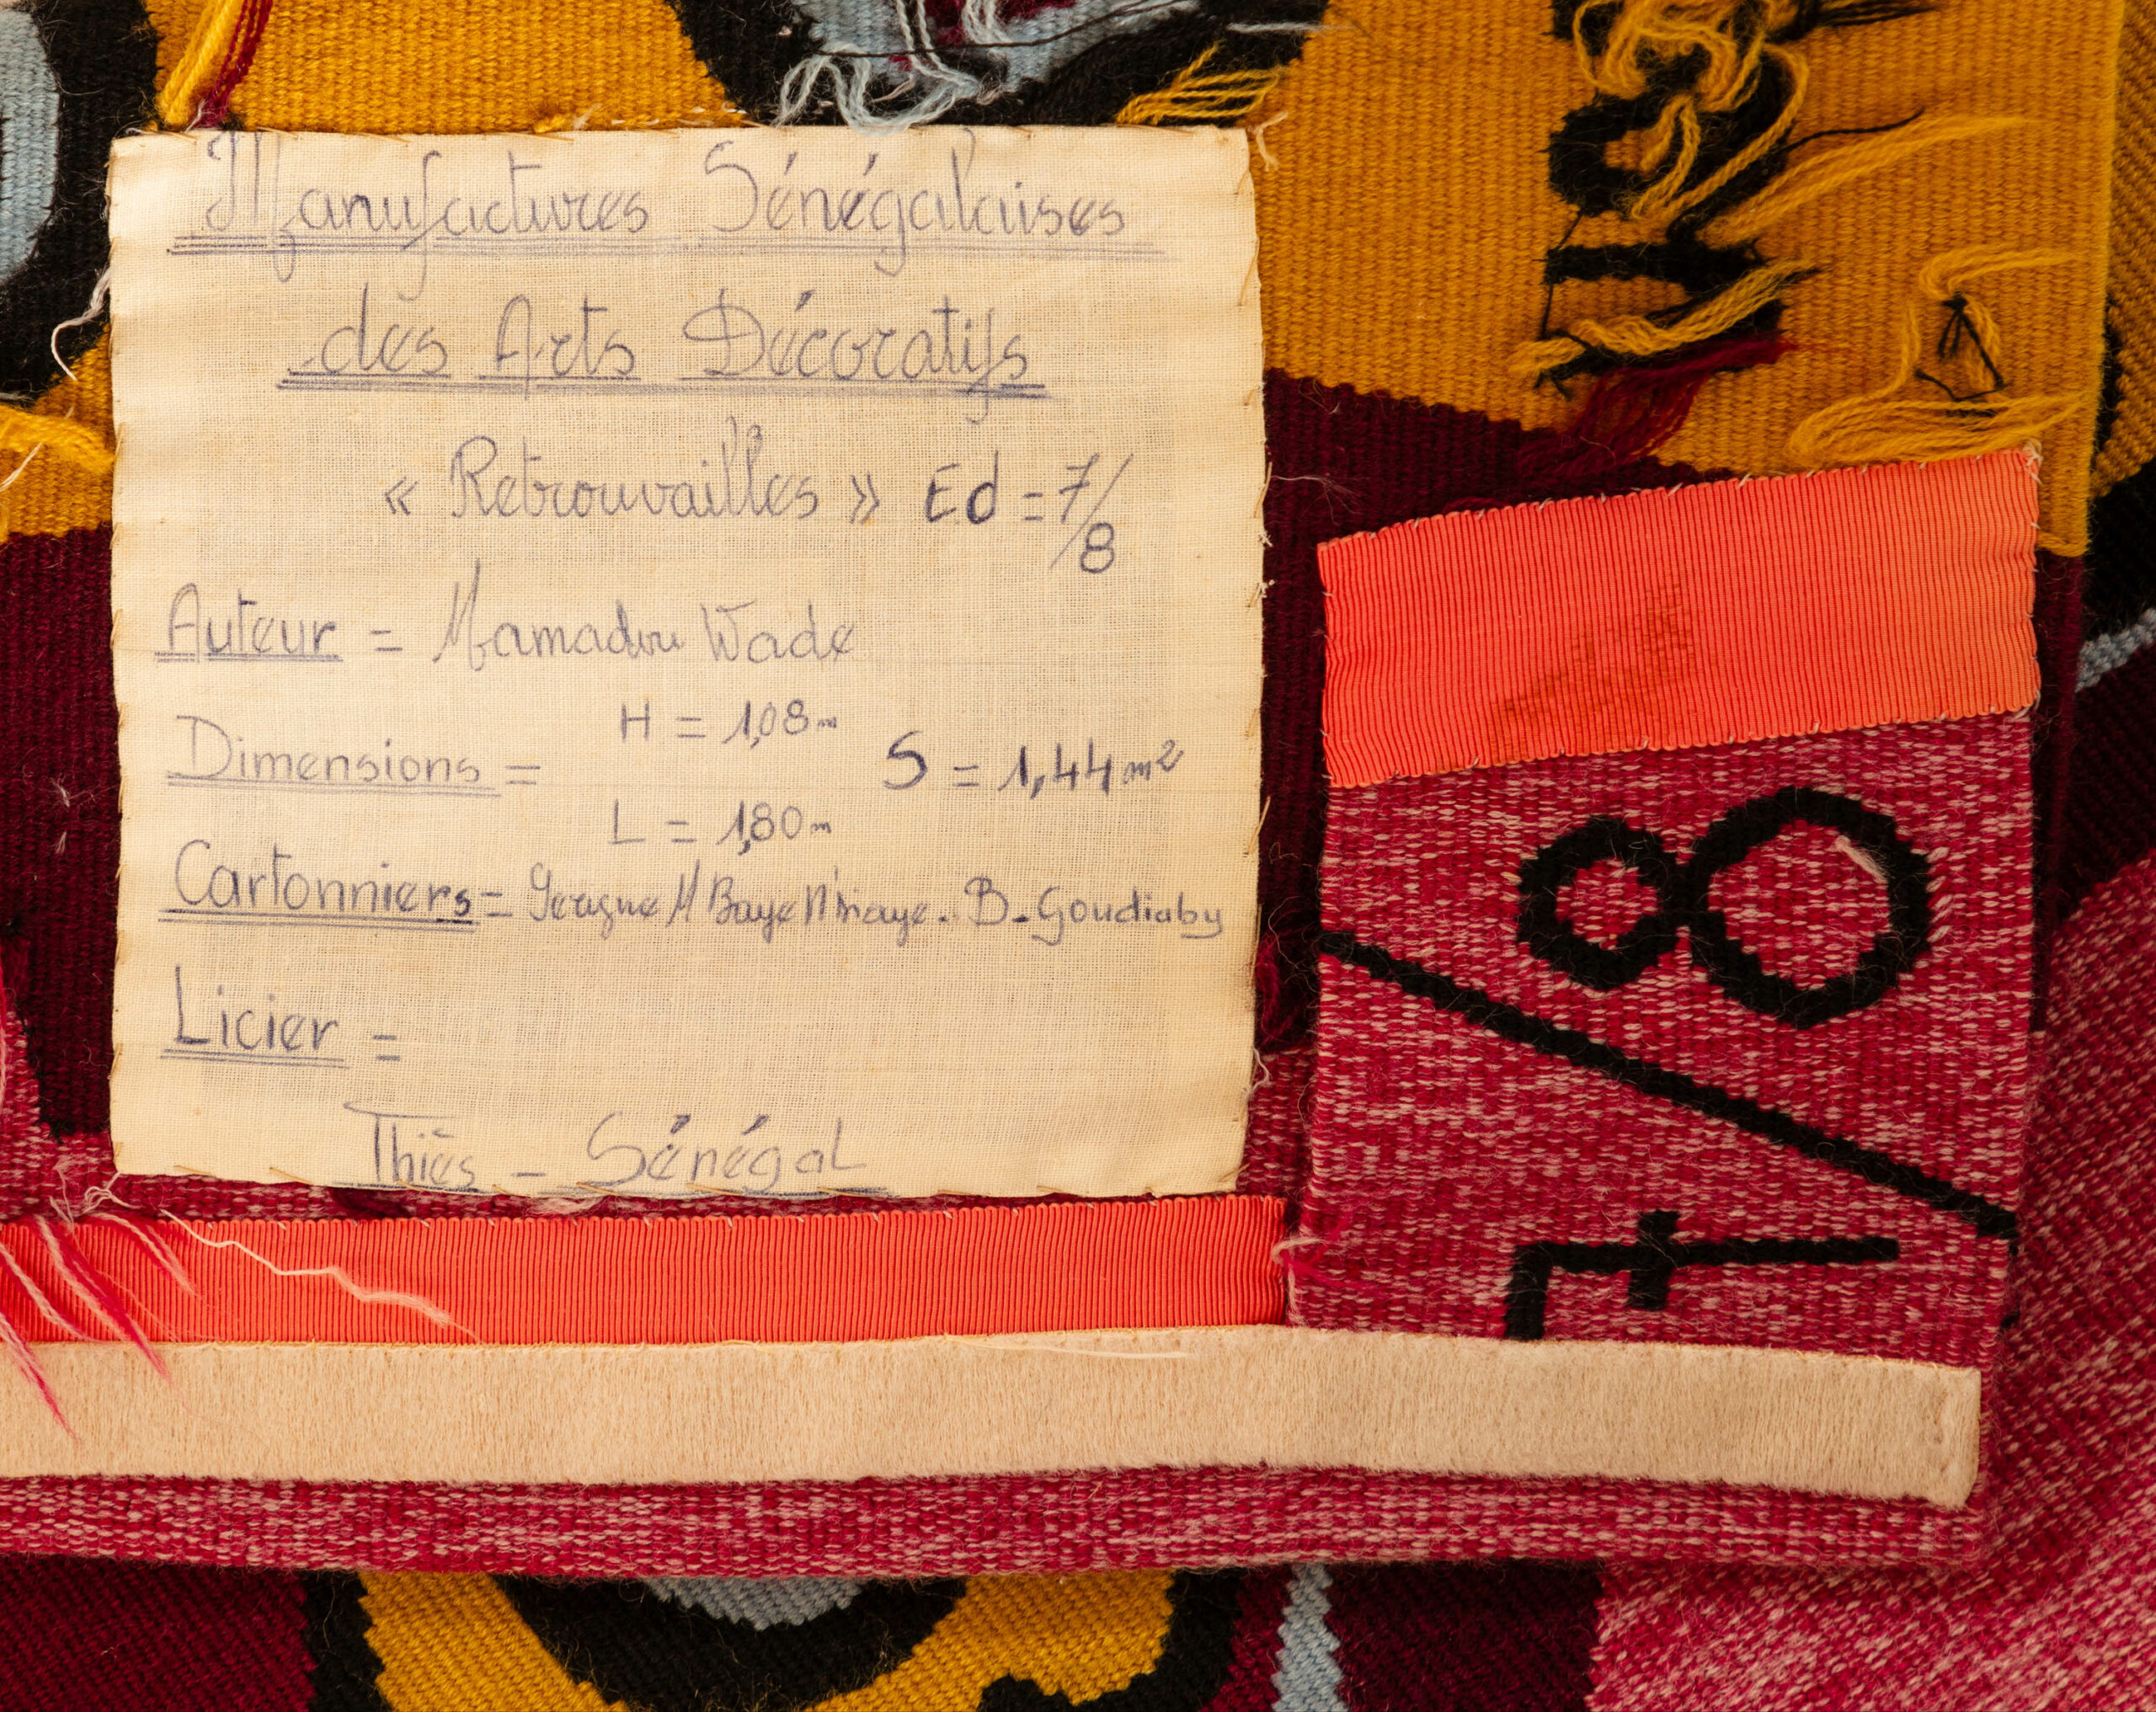 Manufactures Sénégalaises
des Arts Décoratifs
« Retrouvailles » Ed = 7/8
Auteur = Mamadou Wade
H = 1,08m
Dimensions = S = 1,44m²
L = 1,80m
Cartonniers = M Baye N'Diaye. B. Goudiaby
Licier =
Thiès - Sénégal
7/8